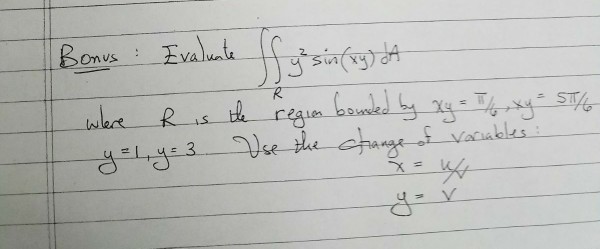 Bonus : Evaluate ∬ y² sin(xy) dA
R
where R is the region bounded by xy = π/6, xy = 5π/6
y=1, y=3 Use the change of variables :
x = u/v
y = v